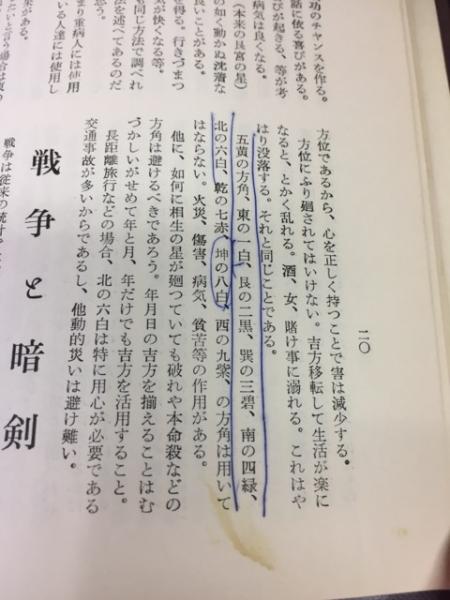 二〇
方位であるから、心を正しく持つことで害は減少する。
方位にふり廻されてはいけない。吉方移転して生活が楽に
なると、とかく乱れる。酒、女、賭け事に溺れる。これはや
はり没落する。それと同じことである。
五黄の方角、東の一白、艮の二黒、巽の三碧、南の四緑、
北の六白、乾の七赤、坤の八白、西の九紫、の方角は用いて
はならない。火災、傷害、病気、貧苦等の作用がある。
他に、如何に相生の星が廻つていても破れや本命殺などの
方角は避けるべきであろう。年月日の吉方を揃えることはむ
づかしいがせめて年と月、年だけでも吉方を活用すること。
長距離旅行などの場合、北の六白は特に用心が必要である
交通事故が多いからであるし、他動的災いは避け難い。
戦争と暗剣
功のチャンスを作る。
話に依る喜びがある。
び事が起きる、等が考
病気は良くなる。
(本来の艮宮の星)
の如く動かぬ沈着な
良いことがある。
せ得る。行きづまつ
気が快くなる等。
も同じ方法で調べれ
法を述べてあるのだ
まり重病人には使用
いる人達には使用し
果がある。
戦争は従来の統計